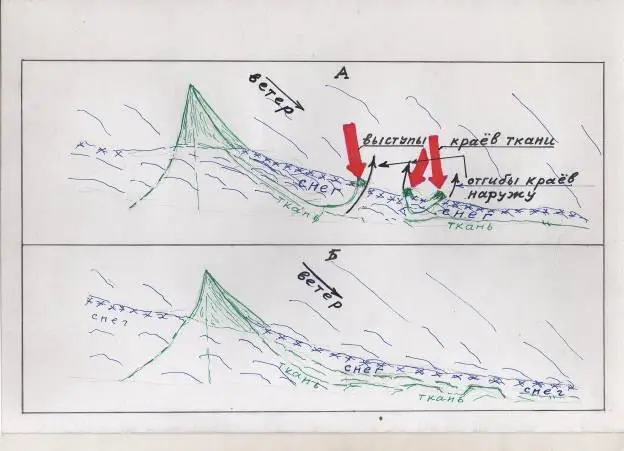 А
ветер
выступы краёв ткани
отгибы краёв
наружу
снег
ткань
снег
ткань
Б
ветер
снег
ткань
снег
ткань
снег